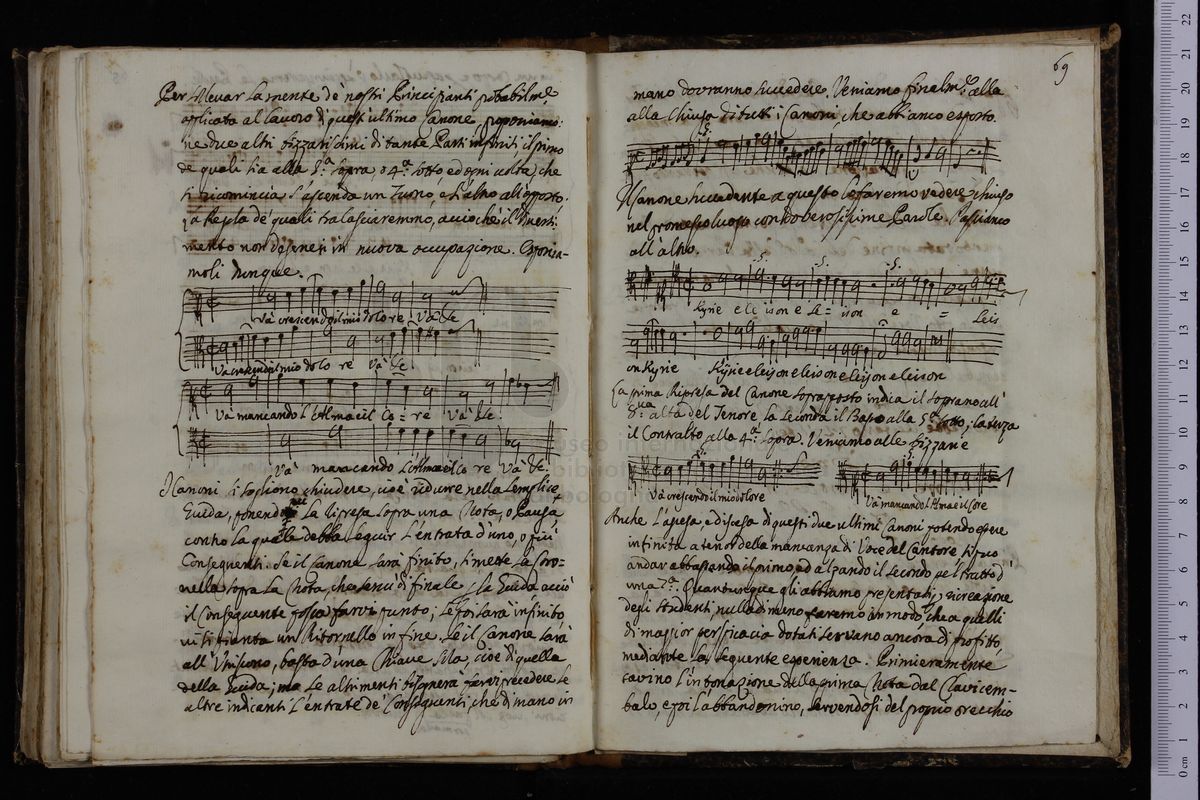 Per sollevar la mente de nostri Principianti probabilm.te
applicata al lavoro di quest'ultimo Canone, proponiamo:
ne due altri bizzarissimi di tante Parti infiniti, il primo
de quali sia alla 5.a sopra, o 4.a sotto ed ogni volta, che
si ricomincia s'ascenda un Tuono, e l'altro all'opposto.
La Regola de quali tralascieremo, acciò che il Diverti:
mento non degeneri in nuova occupazione. Esponia-
moli dunque.
Và crescendo il mio dolore Và &c.
Và crescendo il mio dolo re Và &c.
Và mancando l'Alma e il Co = re Và &c.
Và mancando l'Alma e il Co re Và &c.
I Canoni si sogliono chiudere, cioè ridurre nella semplice
Guida, ponendo la Ripresa sopra una Nota, o Pausa
contro la quale debba seguir l'entrata d'uno, o più
Conseguenti. Se il Canone sarà finito, si mette la Coro=
nella sopra la Nota, che servì di finale la Guida acciò
il Conseguente possa farvi punto, se poi sarà infinito
vi si pianta un Ritornello in fine. Se il Canone sarà
all'Unisono, basta d'una Chiave sola, cioè di quella
della Guida; ma se altrimenti bisognerà farvi precedere le
altre indicanti l'entrate de Conseguenti, che di mano in
69
mano dovranno succedere. Veniamo finalm.te alla
alla Chiusa di tutti i Canoni, che abbiamo esposto.
Il Canone succedente a questo lo faremo vedere chiuso
nel promesso luogo con doverosissime Parole. Passiamo
all'altro.
Kyrie e le ison e le = ison e = leis
on Kyrie Kyrie eleison eleison eleison eleison
La prima Ripresa del Canone soprapposto indica il Soprano all'
8.va alta del Tenore la seconda il Basso alla 5.a sotto, la terza
il Contralto alla 4.a sopra. Veniamo alle Bizzarie
Và crescendo il mio dolore
Và mancando l'Alma e il Core
Anche l'ascesa, e discesa di questi due ultimi Canoni potendo essere
infinita a tenor della mancanza di Voce del Cantore si può
andar abbassando il primo ed alzando il secondo pel tratto d'
una 7.a. Quantunque gli abbiamo presentati per ricreazione
degli studenti nulladimeno faremo in modo, che a quelli
di maggior perspicacia dotati servano ancora di profitto,
mediante la seguente esperienza. Primieramente
cavino l'intonazione della prima Nota dal Clavicem-
balo, e poi l'abbandonino, servendosi del proprio orecchio